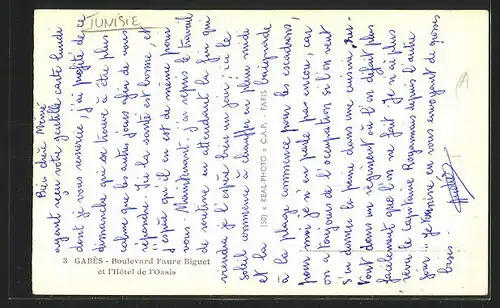 TUNISIE
Bien chère Mémé
ayant reçu votre gentille carte lundi
dont je vous remercie, j'ai profité de ce
dimanche qui se trouve à être plus
calme que les autres jours afin de vous
répondre. Ici la santé est bonne, et
j'espère qu'il en est de même pour
vous. Maintenant j'ai repris le travail
de routine en attendant la fin qui
viendra je l'espère bien un jour, ici le
soleil commence à chauffer en plein midi
et la baignade
à la plage commence pour les escadrons,
pour moi je n'en parle pas encore, car
on a toujours de l'occupation si l'on veut
s'en donner la peine dans une cuisine, sur-
tout dans un régiment où l'on défait plus
facilement que l'on ne fait. Je n'ai plus
revu le Capitaine depuis l'autre
jour. Je termine en vous envoyant de grosses
bises.
150) « REAL-PHOTO » C.A.P. - PARIS
3 GABÈS - Boulevard Faure Biguet
et l'Hôtel de l'Oasis